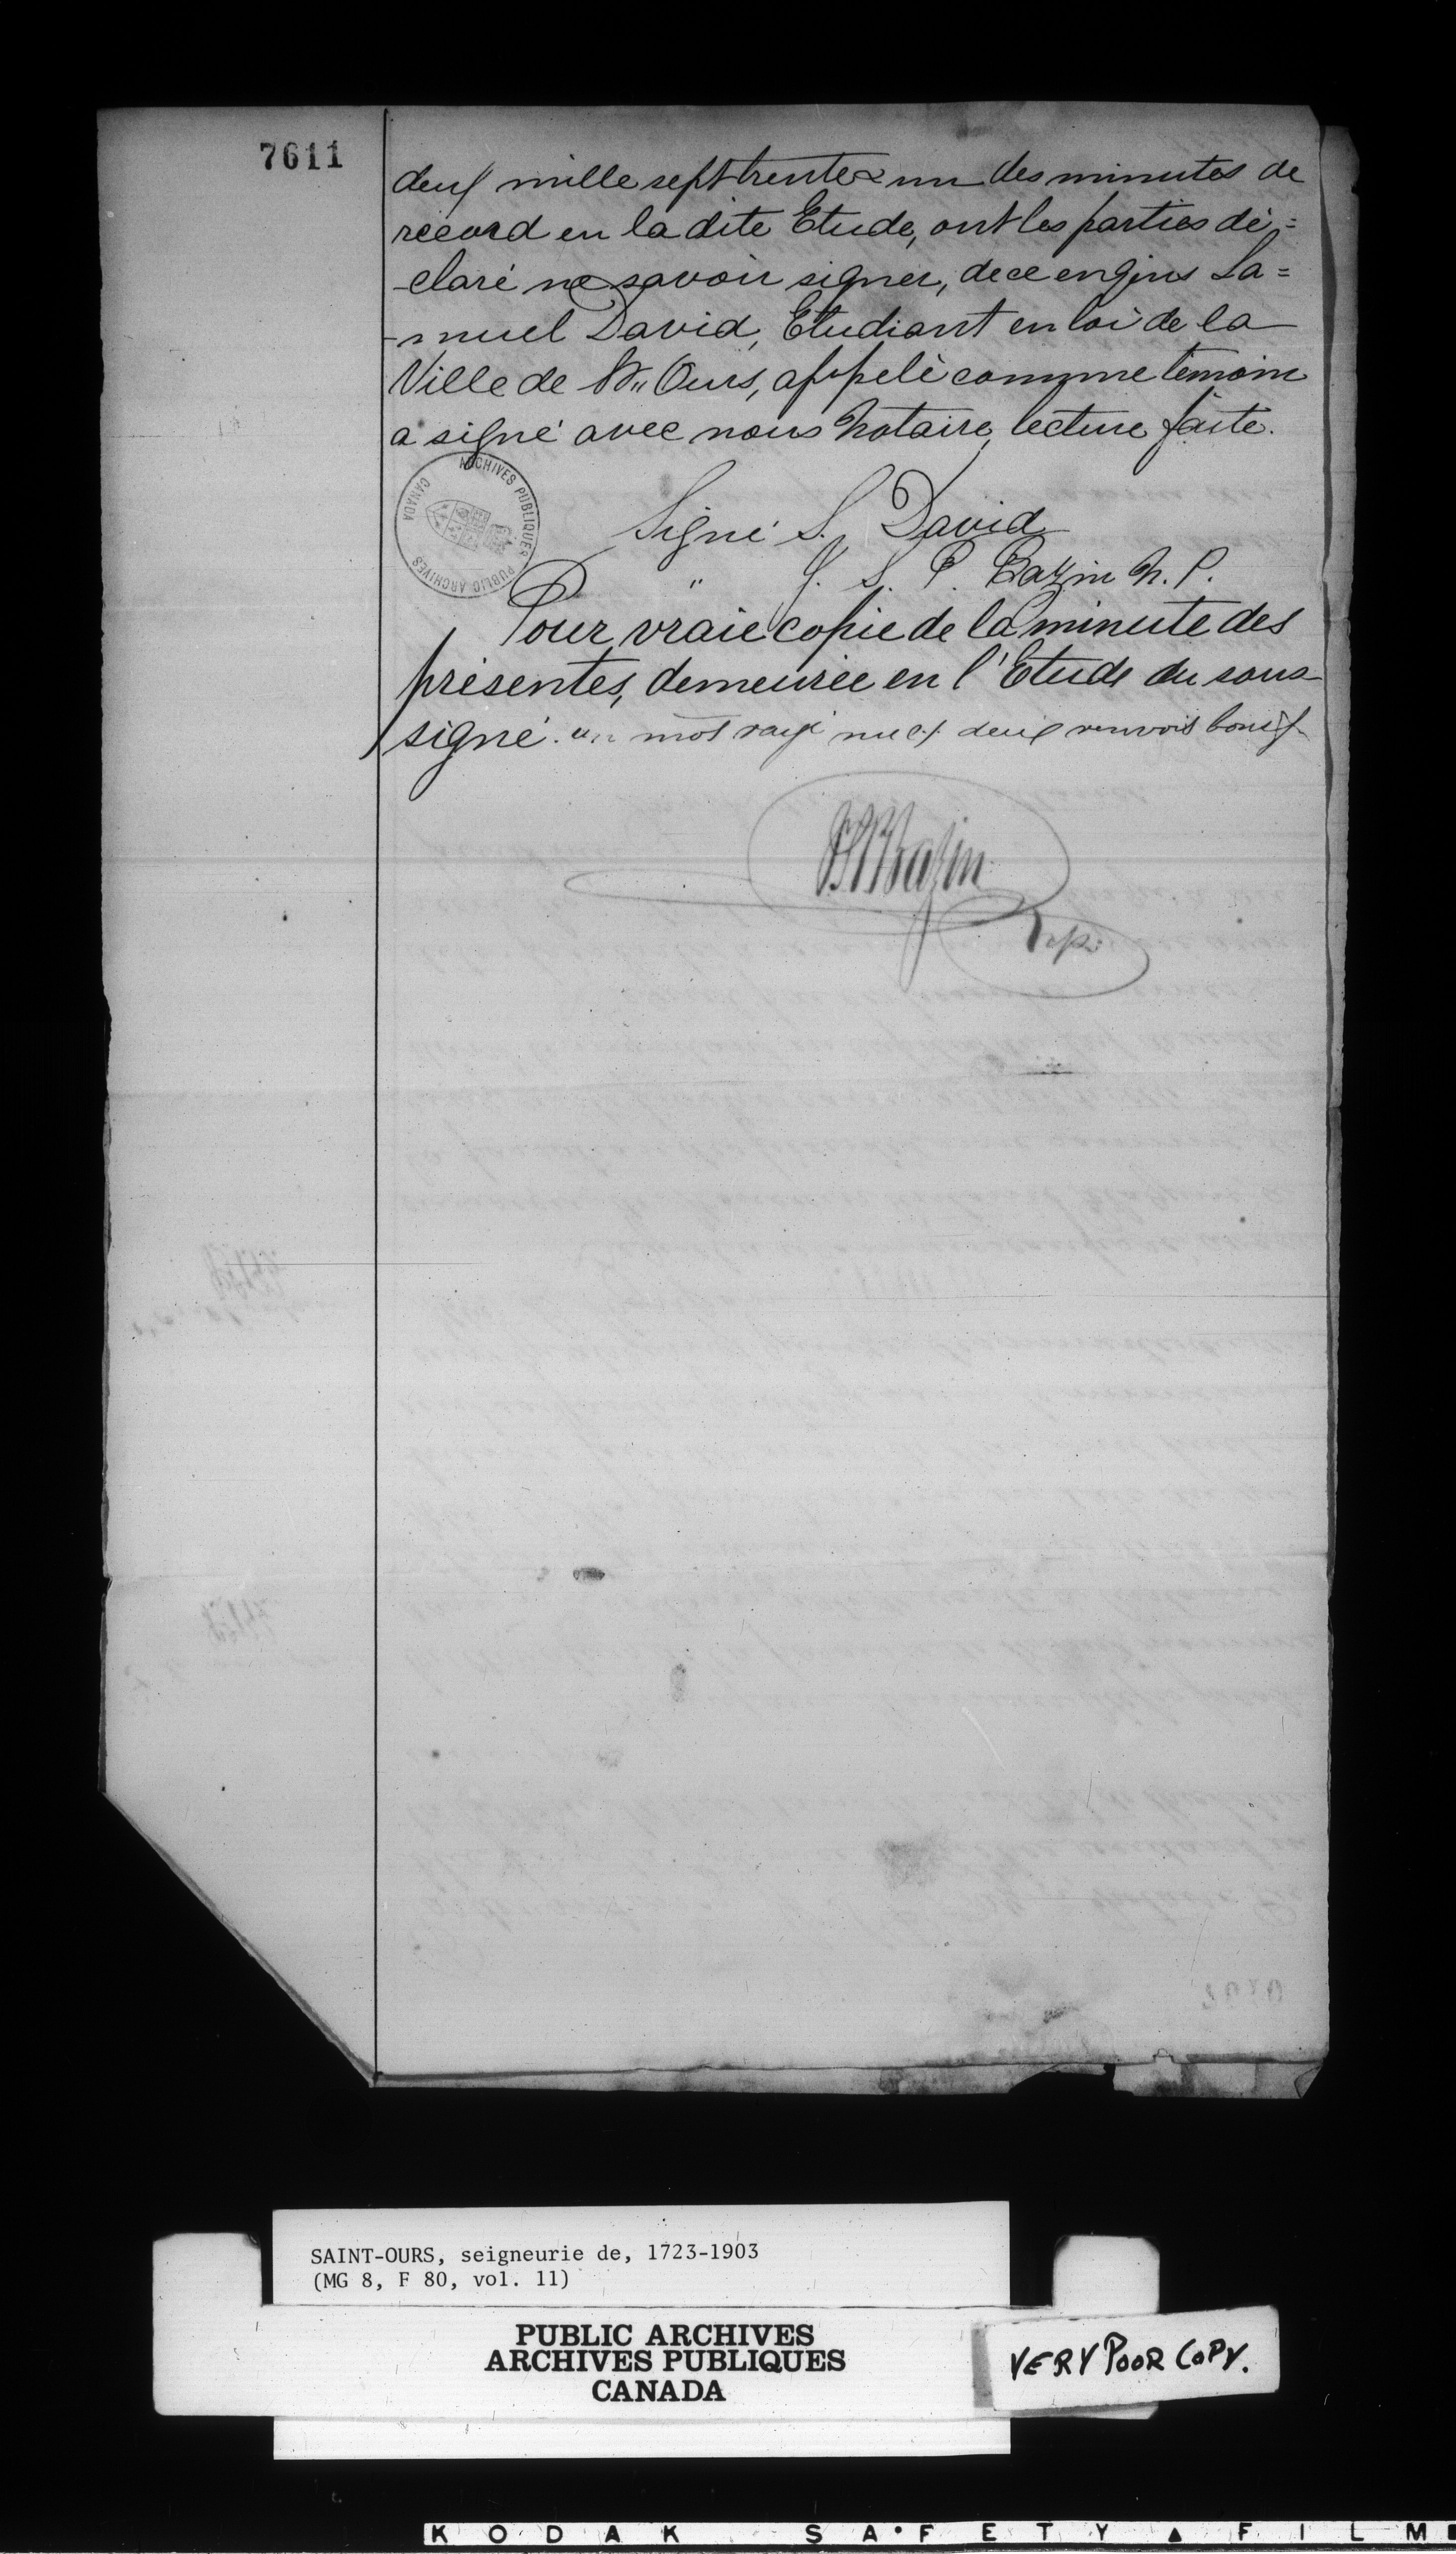 7611
deux mille sept trente & un des minutes de
record en la dite Etude, ont les parties dé=
-claré ne savoir signer, de ce enquis Sa=
-muel David, Etudiant en loi de la
Ville de St. Ours, appelé comme témoin
a signé avec nous Notaire, lecture faite.
ARCHIVES PUBLIQUES PUBLIC ARCHIVES CANADA
Signé S. David
" J. S. P. Bazin N. P.
Pour vraie copie de la minute des
présentes, demeurée en l'Etude du sous-
signé. un mot rayé nul & deux renvois bons
Bazin
SAINT-OURS, seigneurie de, 1723-1903
(MG 8, F 80, vol. 11)
PUBLIC ARCHIVES
ARCHIVES PUBLIQUES
CANADA
VERY POOR COPY.
KODAK SAFETY FILM